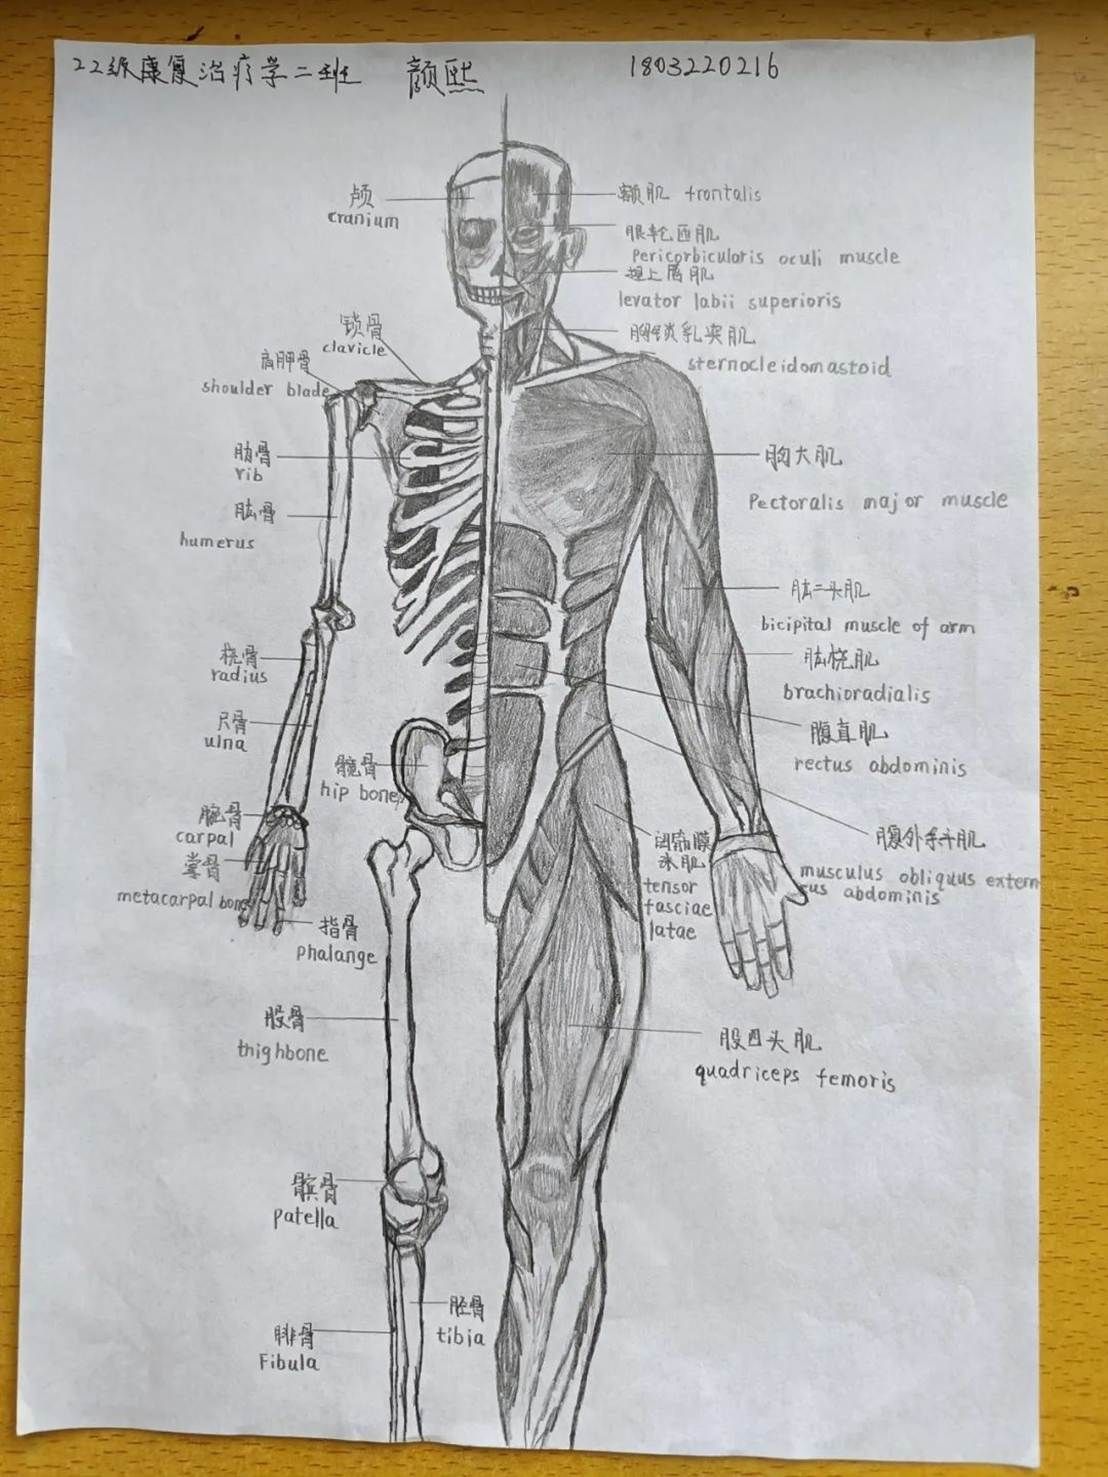 22级康复治疗学二班 颜熙 1803220216
颅
cranium
锁骨
clavicle
肩胛骨
shoulder blade
肋骨
rib
肱骨
humerus
桡骨
radius
尺骨
ulna
髋骨
hip bones
腕骨
carpal
掌骨
metacarpal bone
指骨
phalange
股骨
thighbone
髌骨
patella
胫骨
tibia
腓骨
Fibula
额肌 frontalis
眼轮匝肌
Pericorbicularis oculi muscle
提上唇肌
levator labii superioris
胸锁乳突肌
sternocleidomastoid
胸大肌
Pectoralis major muscle
肱二头肌
bicipital muscle of arm
肱桡肌
brachioradialis
腹直肌
rectus abdominis
腹外斜肌
musculus obliquus extern
us abdominis
阔筋膜
张肌
tensor
fasciae
latae
股四头肌
quadriceps femoris